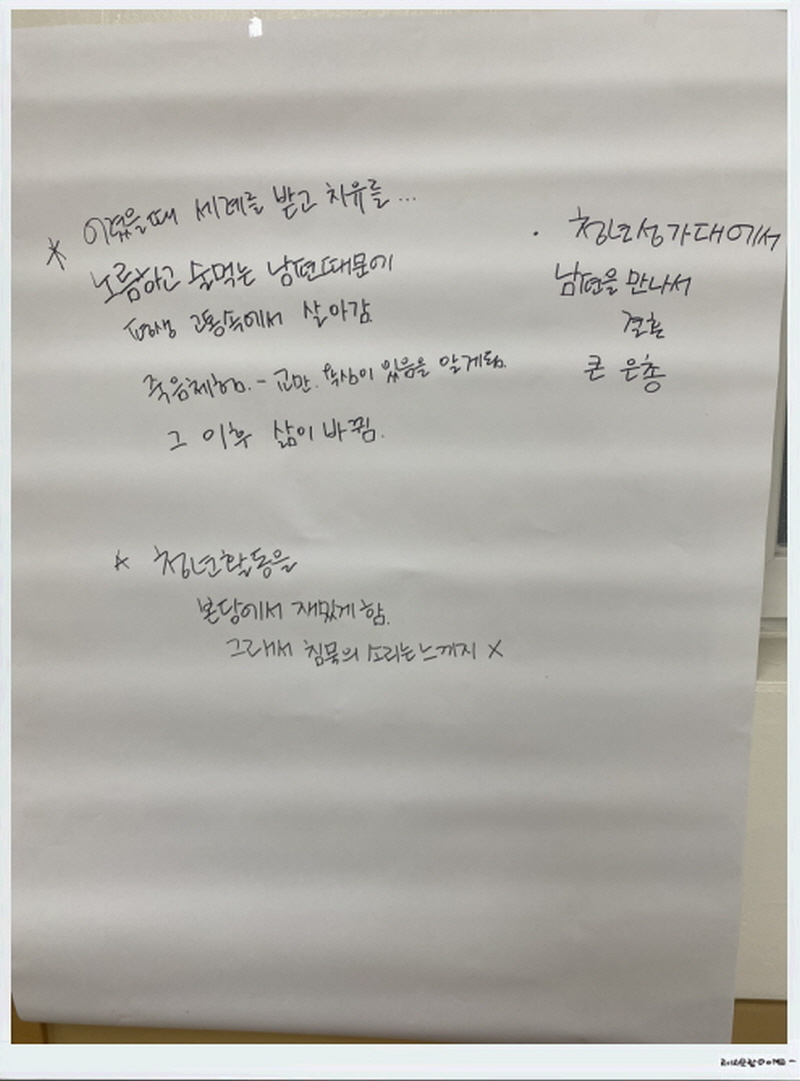 * 어렸을때 세례를 받고 치유를...
노름하고 술먹는 남편때문에
평생 고통속에서 살아감
죽음체험. - 교만. 욕심이 있음을 알게됨.
그 이후 삶이 바뀜.
* 청년활동을
본당에서 재밌게 함.
그래서 침묵의 소리는 느끼지 X
· 청년성가대에서
남편을 만나서
결혼
큰 은총